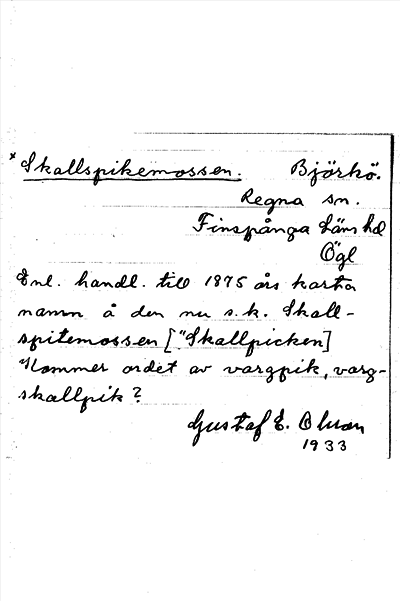 * Skallspikemossen. Björkö.
Regna sn.
Finspånga läns hd
Ögl
Enl. handl. till 1875 års karta
namn å den nu s.k. Skall-
spitemossen ["Skallpicken]
Kommer ordet av vargpik, varg-
skallpik?
Gustaf E. Olson
1933